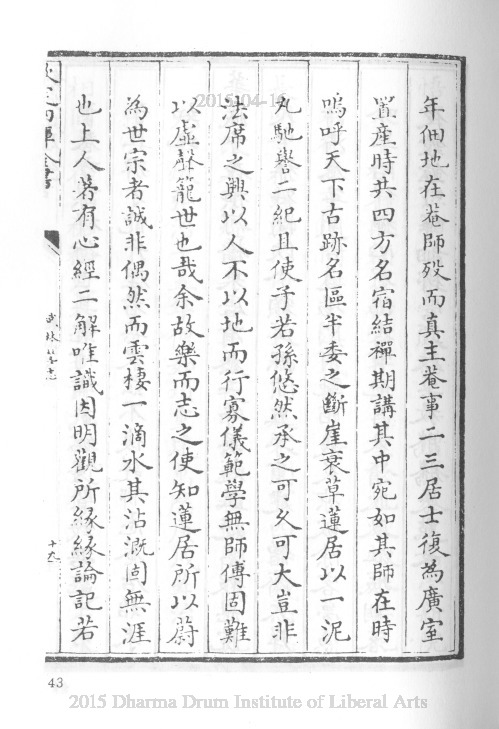 年佃地在菴師歿而真主菴事二三居士復為廣室
置產時共四方名宿結禪期講其中宛如其師在時
嗚呼天下古跡名區半委之斷崖衰草蓮居以一泥
丸馳譽二紀且使子若孫悠然承之可久可大豈非
法席之興以人不以地而行寡儀範學無師傳固難
以虛聲籠世也哉余故樂而志之使知蓮居所以蔚
為世宗者誠非偶然而雲棲一滴水其沾溉固無涯
也上人著有心經二解唯識因明觀所緣緣論記若
武林梵志
十九
43
2015-04-16
2015 Dharma Drum Institute of Liberal Arts